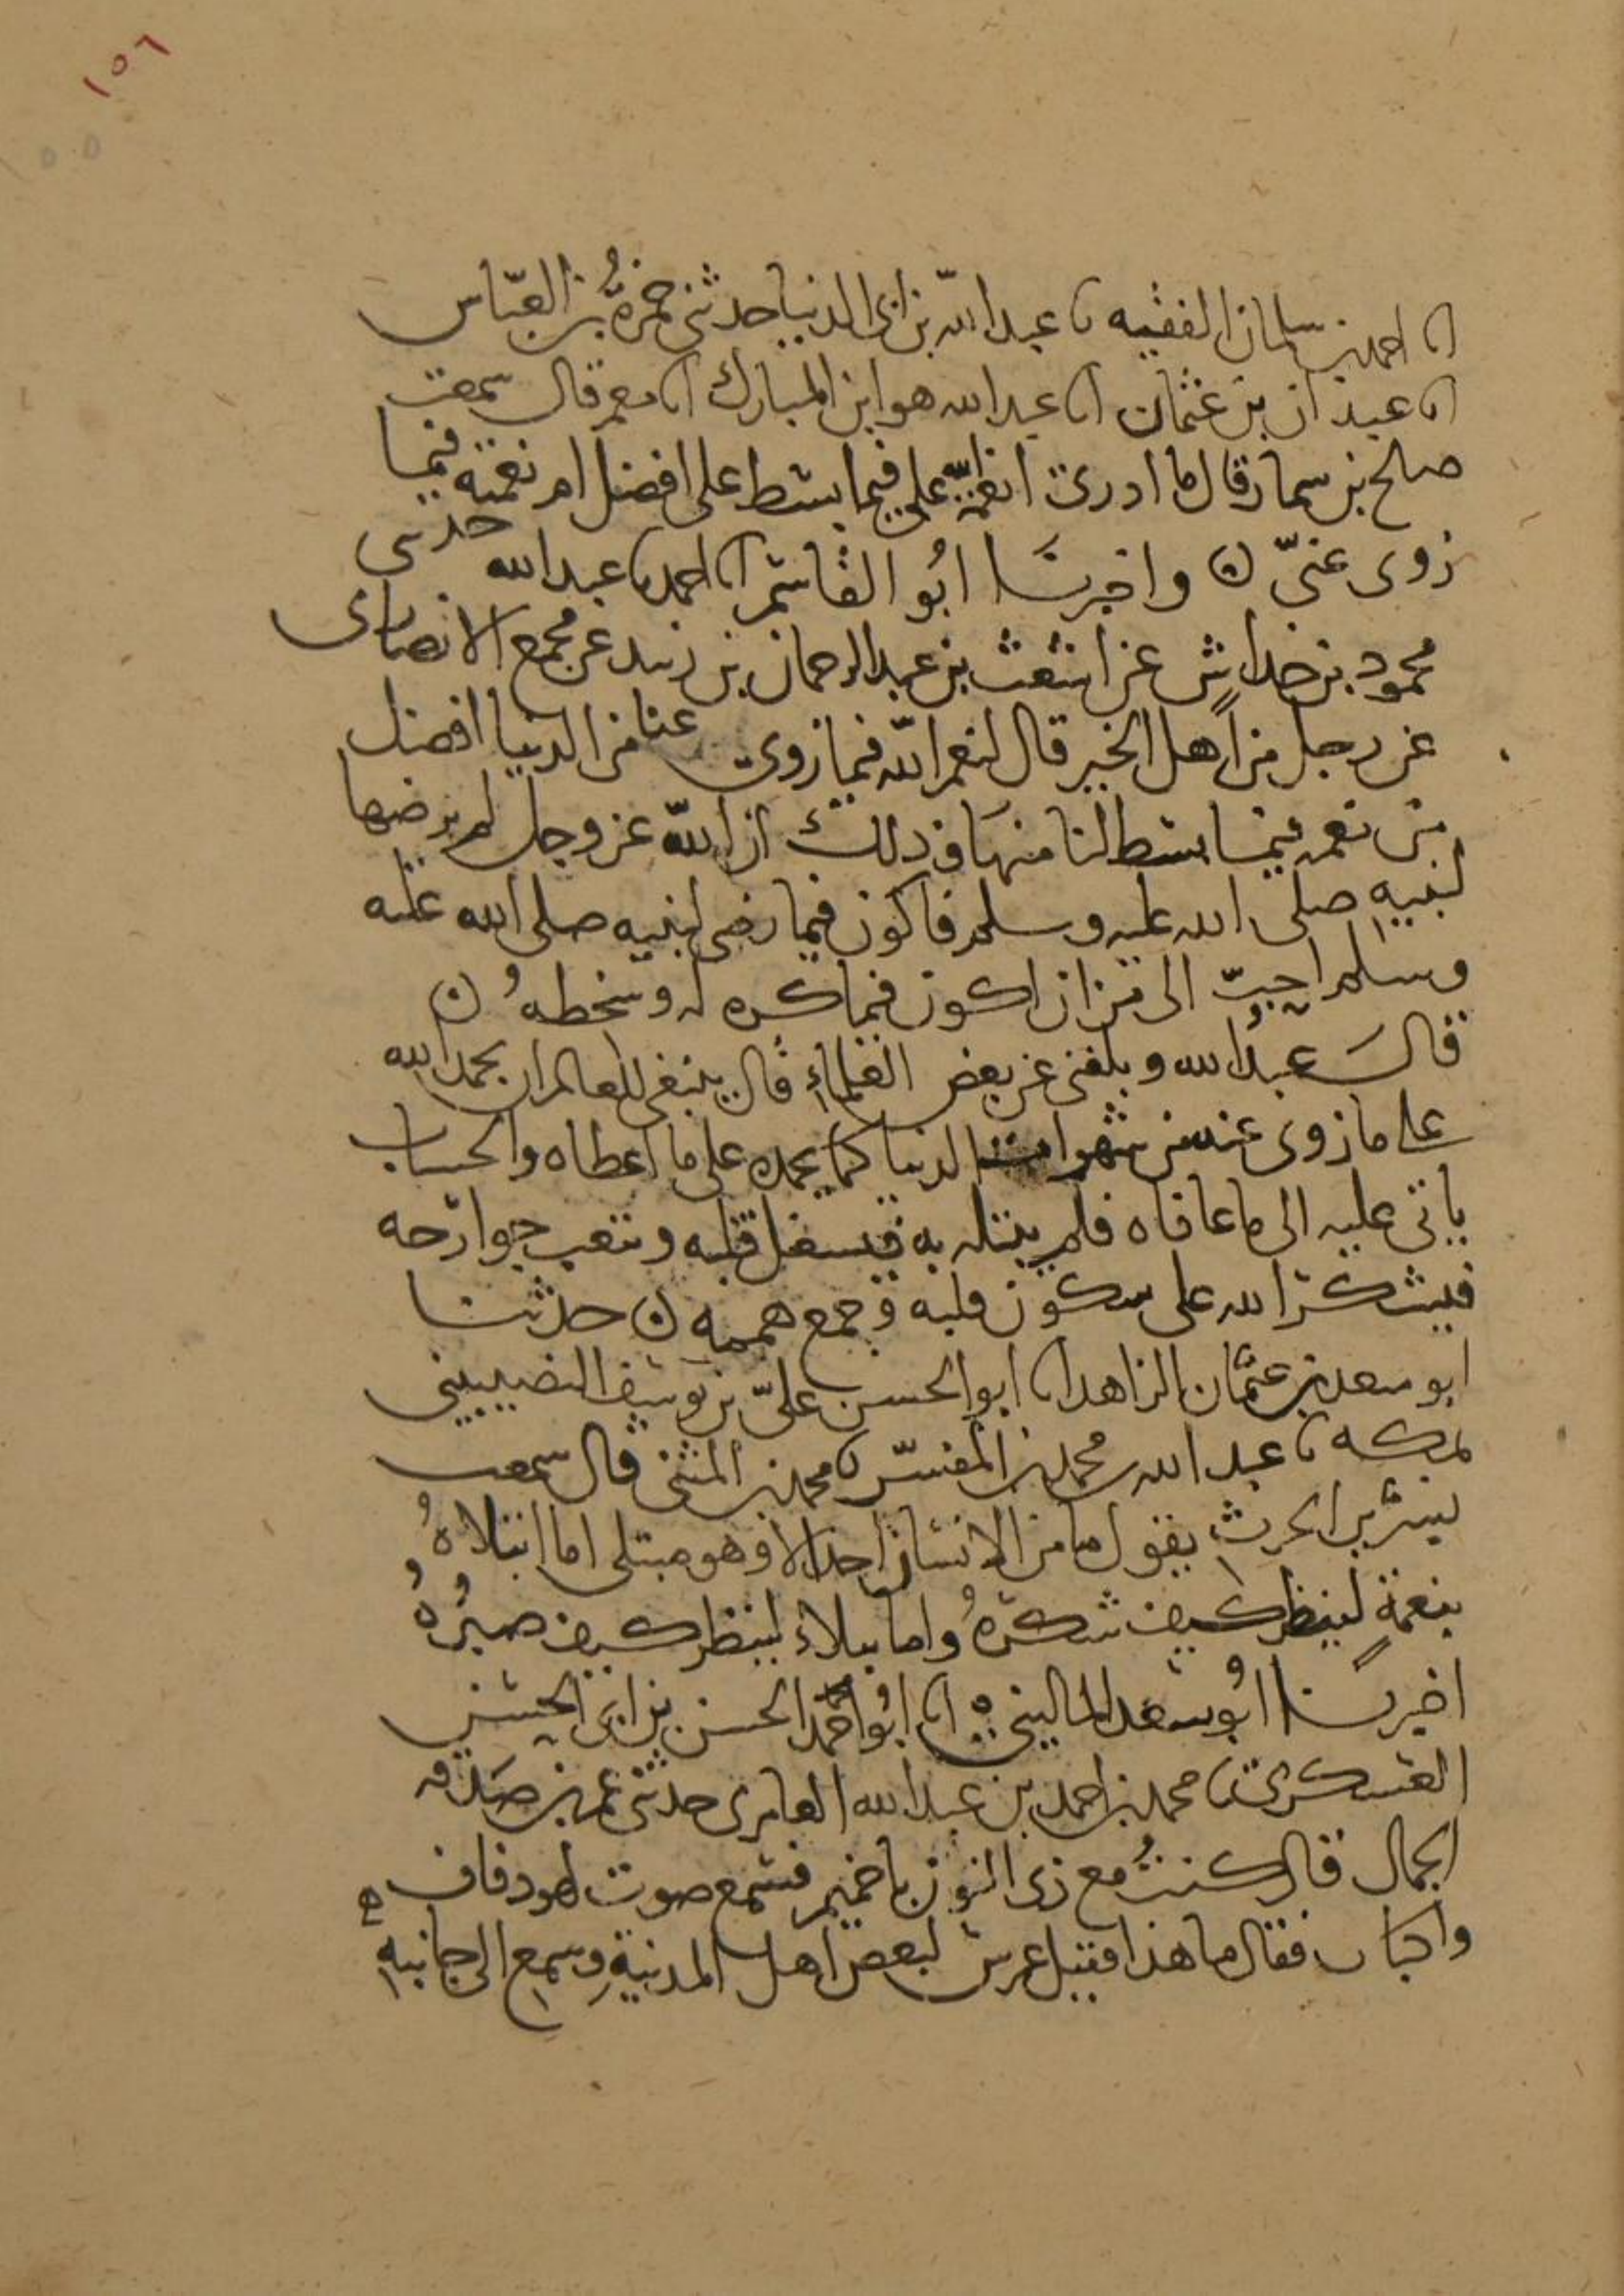 ١٥٦
انا احمد بن سلمان الفقيه نا عبد الله بن ابي الدنيا حدثني حمزة بن العباس
انا عبدان بن عثمان انا عبد الله هو ابن المبارك انا معمر قال سمعت
صلح بن سمار قال ما ادري انعمته علي فيما بسط علي افضل ام نعمته فيما
زوى عني ن واخبرنا ابو القاسم انا احمد نا عبد الله حدثني
محمود بن خداش عن اشعث بن عبد الرحمان بن زبيد عن مجمع الانصارى
عن رجل من اهل الخير قال لنعم الله فيما زوى عنا من الدنيا افضل
من نعمه فيما بسط لنا منها و ذلك ان الله عز وجل لم يرضها
لنبيه صلى الله عليه وسلم فاكون فيما رضي لنبيه صلى الله عليه
وسلم احب الي من ان اكون فيما كره له وسخطه ن
قال عبد الله وبلغني عن بعض العلماء قال ينبغي للعالم ان يحمد الله
على ما زوى عنه من شهوات الدنيا كما يحمده على ما اعطاه والحساب
ياتي عليه الى ما عافاه فلم يبتله به فيشغل قلبه وتتعب جوارحه
فيشكر الله على سكون قلبه وجمع همه ن حدثنا
ابو سعد بن عثمان الزاهد انا ابو الحسن علي بن يوسف النصيبيني
بمكه نا عبد الله بن محمد بن المفسر نا محمد بن المثنى قال سمعت
بشر بن الحرث يقول ما من الانسان احد الا وهو مبتلى اما ابتلاه
بنعمة لينظر كيف شكره واما ببلاء لينظر كيف صبره
اخبرنا ابو سعد الماليني انا ابو احمد الحسن بن ابي الحسن
العسكري نا محمد بن احمد بن عبد الله العامري حدثني عمر بن صدقه
الجمال قال كنت مع ذي النون باخميم فسمع صوت لهو ودفاف
واكبار فقال ما هذا فقيل عرس لبعض اهل المدينة وسمع الى جانبه